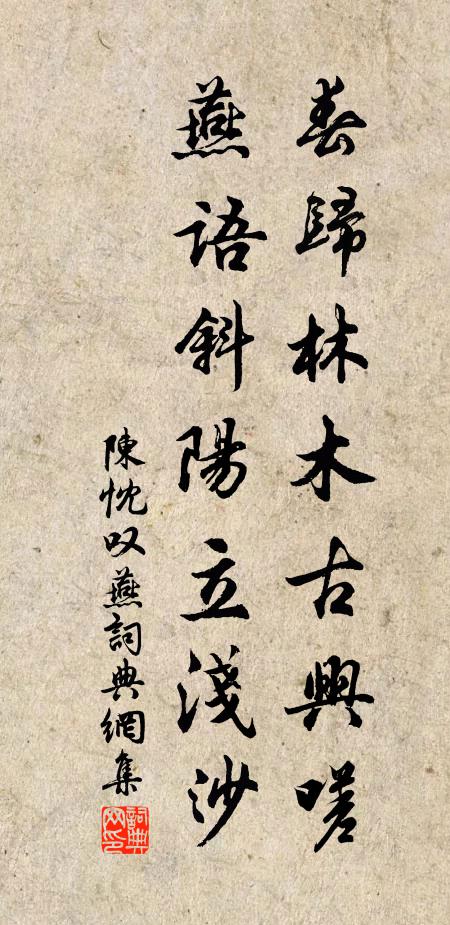 春歸林木古興嗟
燕語斜陽立淺沙
陳忱叹燕詞典網集
詞典網印